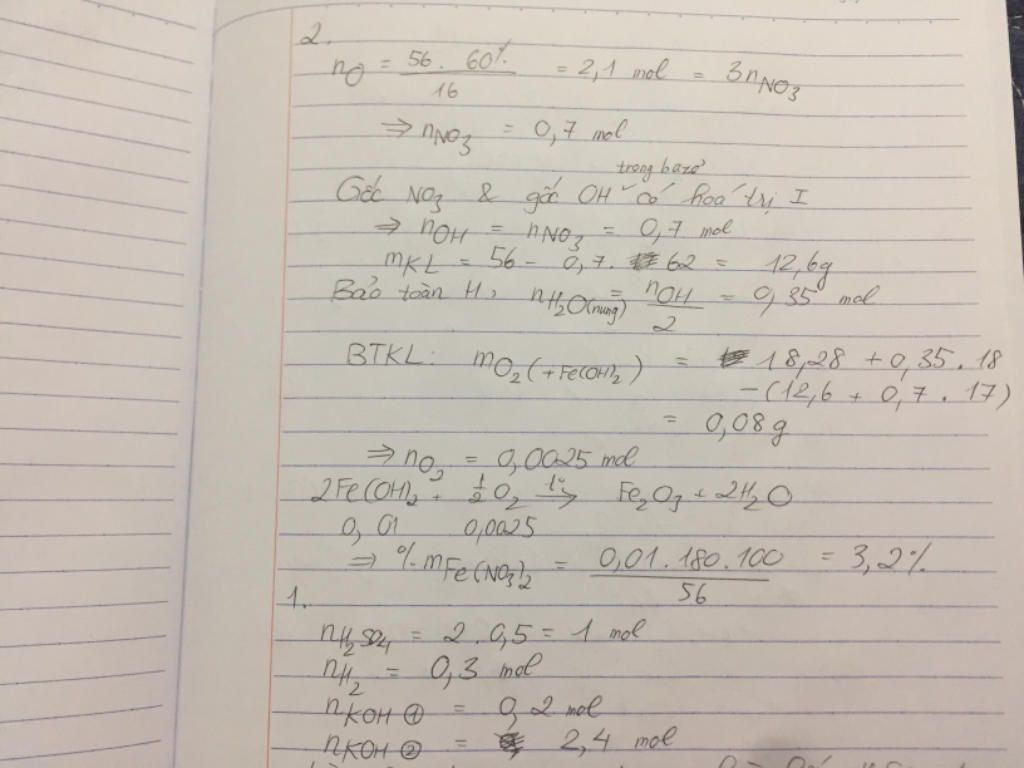 2.
nO = 56 . 60% / 16 = 2,1 mol = 3nNO3
⇒ nNO3 = 0,7 mol
trong bazơ
Gốc NO3 & gốc OH có hoá trị I
⇒ nOH = nNO3 = 0,7 mol
mKL = 56 - 0,7 . 62 = 12,6g
Bảo toàn H, nH2O(nung) = nOH / 2 = 0,35 mol
BTKL: mO2 (+Fe(OH)2) = 18,28 + 0,35 . 18
- (12,6 + 0,7 . 17)
= 0,08 g
⇒ nO2 = 0,0025 mol
2Fe(OH)2 + 1/2 O2 t°→ Fe2O3 + 2H2O
0,01 0,0025
⇒ %mFe(NO3)2 = 0,01 . 180 . 100 / 56 = 3,2%
1.
nH2SO4 = 2 . 0,5 = 1 mol
nH2 = 0,3 mol
nKOH ① = 0,2 mol
nKOH ② = 2,4 mol